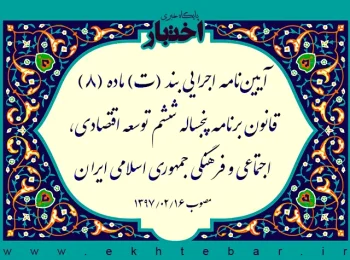 پایگاه خبری
اختبار
آیین‌نامه اجرایی بند (ت) ماده (۸)
قانون برنامه پنجساله ششم توسعه اقتصادی،
اجتماعی و فرهنگی جمهوری اسلامی ایران
مصوب ۱۳۹۷/۰۲/۱۶
www.ekhtebar.ir